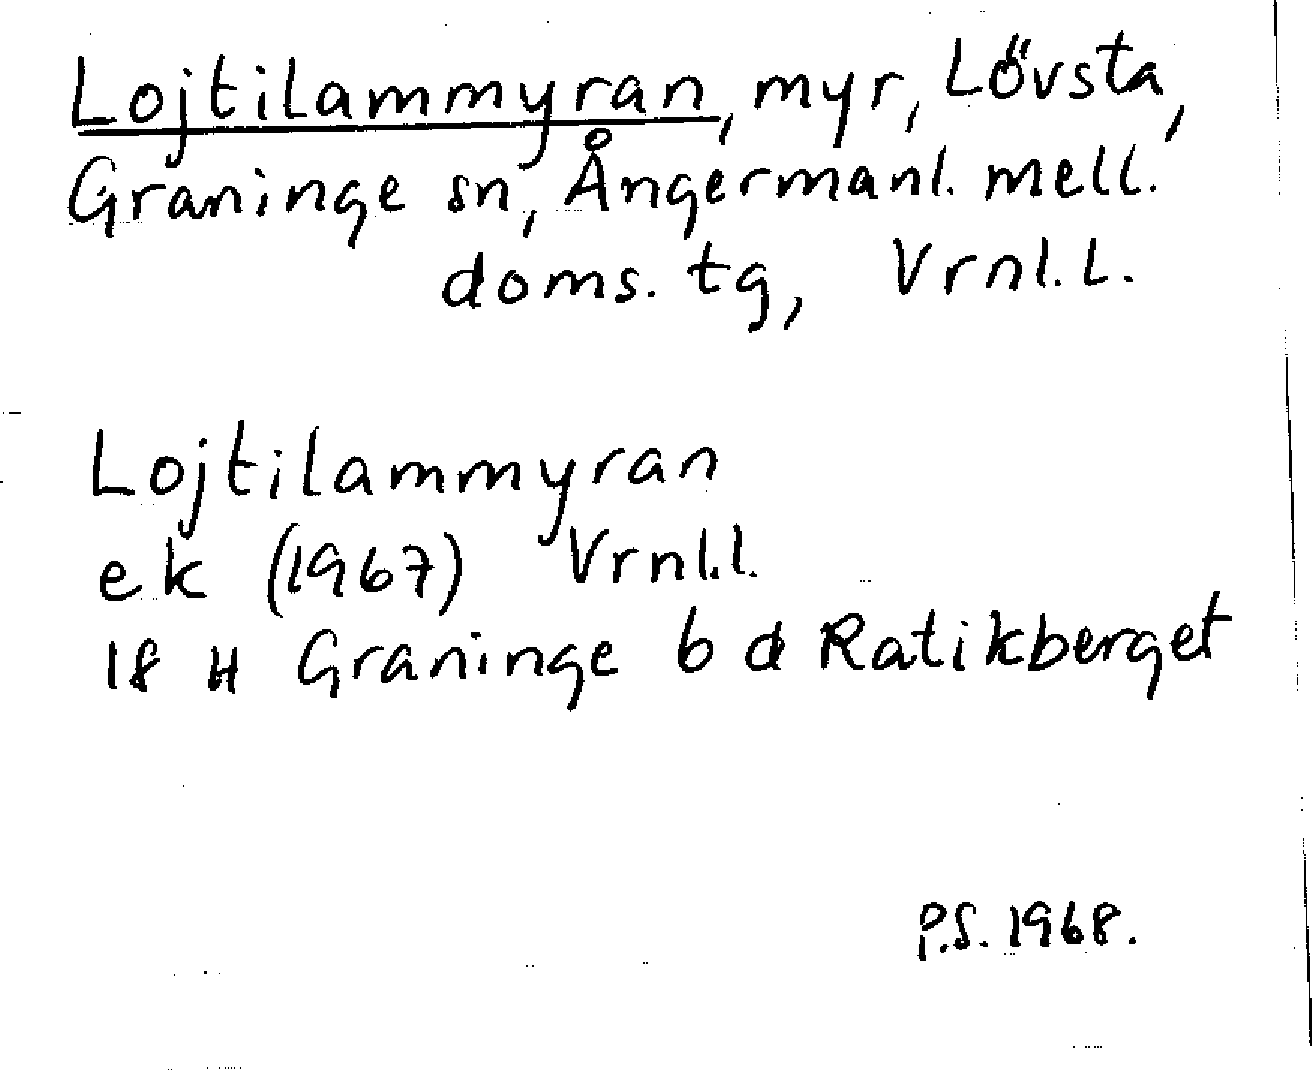 Lojtilammyran, myr, Lövsta,
Graninge sn, Ångermanl. mell.
doms. tg, Vrnl. L.
Lojtilammyran
ek (1967) Vrnl. l.
18 H Graninge 6 d Ratikberget
P.S. 1968.